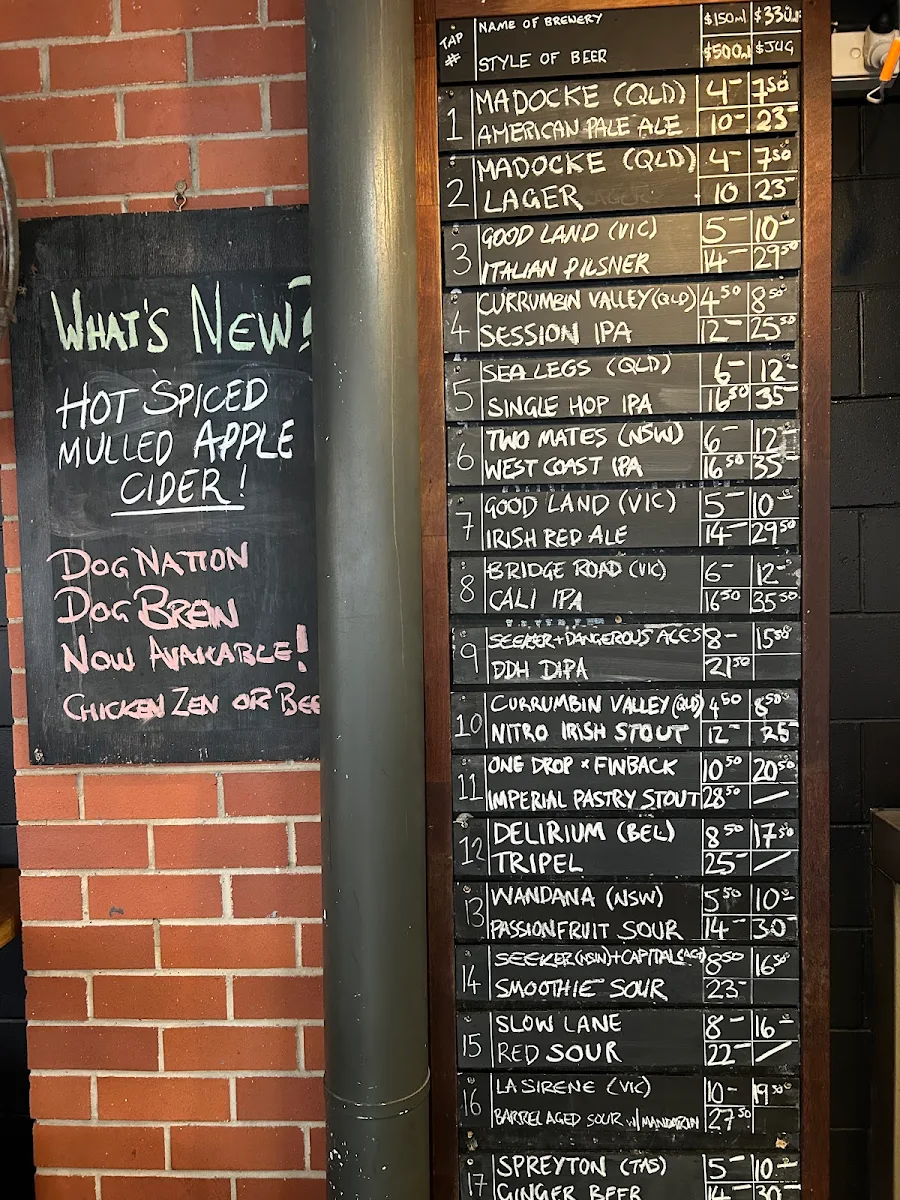 WHAT'S NEW?
HOT SPICED
MULLED APPLE
CIDER!
DOG NATION
DOG BREW
NOW AVAILABLE!
CHICKEN ZEN OR BEE
TAP # NAME OF BREWERY $150ml $330ml
STYLE OF BEER $500ml $JUG
1 MADOCKE (QLD) 4- 7.50
AMERICAN PALE ALE 10- 23-
2 MADOCKE (QLD) 4- 7.50
LAGER 10 23-
3 GOOD LAND (VIC) 5- 10-
ITALIAN PILSNER 14- 29.50
4 CURRUMBIN VALLEY (QLD) 4.50 8.50
SESSION IPA 12- 25.50
5 SEA LEGS (QLD) 6- 12-
SINGLE HOP IPA 16.50 35-
6 TWO MATES (NSW) 6- 12-
WEST COAST IPA 16.50 35-
7 GOOD LAND (VIC) 5- 10-
IRISH RED ALE 14- 29.50
8 BRIDGE ROAD (VIC) 6- 12-
CALI IPA 16.50 35.50
9 SEEKER + DANGEROUS ACES 8- 15.50
DDH DIPA 21.50
10 CURRUMBIN VALLEY (QLD) 4.50 8.50
NITRO IRISH STOUT 12- 25
11 ONE DROP × FINBACK 10.50 20.50
IMPERIAL PASTRY STOUT 28.50 —
12 DELIRIUM (BEL) 8.50 17.50
TRIPEL 25- —
13 WANDANA (NSW) 5.50 10-
PASSIONFRUIT SOUR 14- 30-
14 SEEKER (NSW) + CAPITAL (ACT) 8.50 16.50
SMOOTHIE SOUR 23-
15 SLOW LANE 8- 16-
RED SOUR 22- —
16 LA SIRENE (VIC) 10- 19.50
BARREL AGED SOUR w/ MANDARIN 27.50
17 SPREYTON (TAS) 5- 10-
GINGER BEER 14- 30-